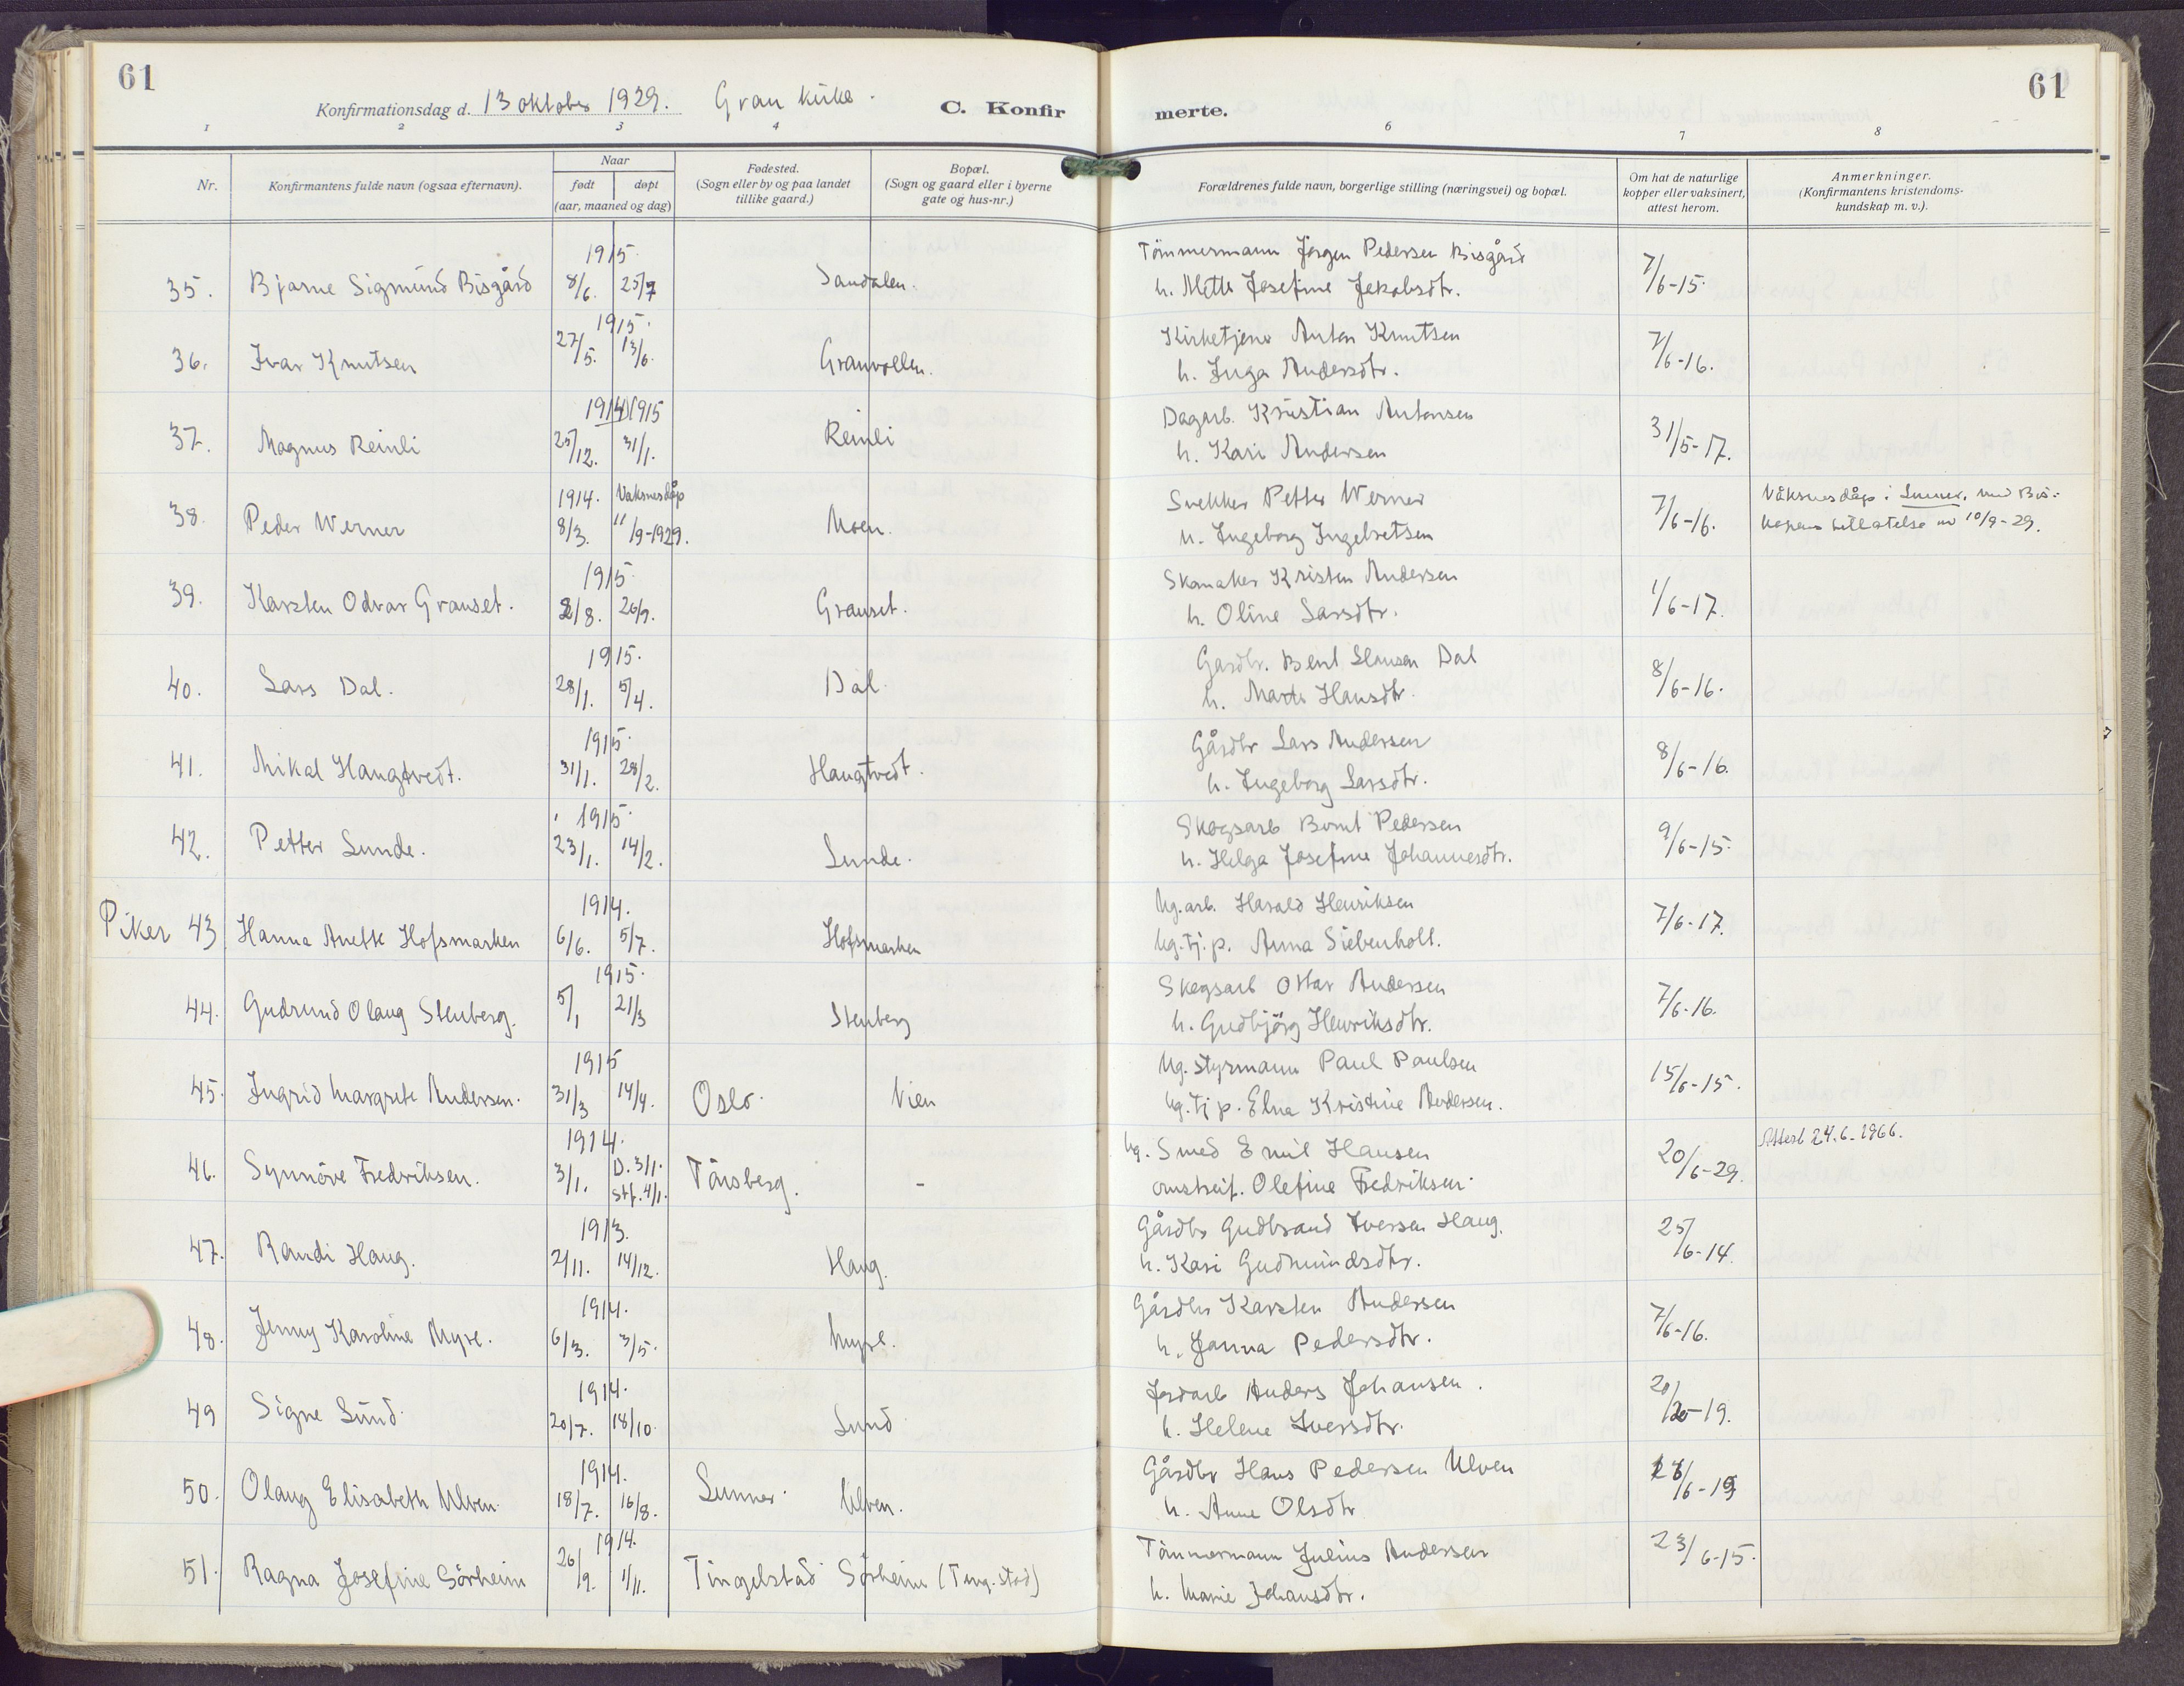 61
Konfirmationsdag d. 13 oktober 1929. Gran kirke.
C. Konfirmerte.
61
1 2 3 4 6 7 8
Nr.
Konfirmantens fulde navn (ogsaa efternavn).
Naar
født døpt
(aar, maaned og dag)
Fødested.
(Sogn eller by og paa landet
tillike gaard.)
Bopæl.
(Sogn og gaard eller i byerne
gate og hus-nr.)
Forældrenes fulde navn, borgerlige stilling (næringsvei) og bopæl.
Om hat de naturlige
kopper eller vaksinert,
attest herom.
Anmerkninger.
(Konfirmantens kristendoms-
kundskap m. v.).
1915. Tömmermann Jörgen Pedersen Bisgård
35. Bjarne Sigmund Bisgård 8/6. 25/7 Sandalen. h. Mette Josefine Jakobsdtr. 7/6-15.
1915. Kirketjener Anton Knutsen
36. Ivar Knutsen 27/5. 13/6. Granvollen. h. Inga Andersdtr. 7/6-16.
1914 1915 Dagarb. Kristian Antonsen
37. Magnus Reinli 25/12. 31/1. Reinli h. Kari Andersen 31/5-17.
1914. Vaksnedåp Snekker Petter Werner Våksnedåp i Lunner, med Bis-
38. Peder Werner 8/3. 11/9-1929. Moen. h. Ingeborg Ingebretsen 7/6-16. kopens tillatelse av 10/9-29.
1915. Skomaker Kristen Andersen
39. Karsten Odvar Granset. 2/8. 26/9. Granset. h. Oline Larsdtr. 1/6-17.
1915. Gardbr. Bent Hansen Dal
40. Lars Dal. 28/1. 5/4. Dal. h. Marte Hansdtr. 8/6-16.
1915. Gårdbr Lars Andersen
41. Mikal Haugtvedt. 31/1. 28/2. Haugtvedt. h. Ingeborg Larsdtr. 8/6-16.
1915. Skogsarb Bernt Pedersen
42. Petter Lunde. 23/1. 14/2. Lunde. h. Helga Josefine Johannesdtr. 9/6-15.
1914. Ug. arb. Harald Henriksen
Piker 43 Hanna Anette Hofsmarken 6/6. 5/7. Hofsmarken Ug. tj. p. Anna Siebenholt. 7/6-17.
1915. Skogsarb Ottar Andersen
44. Gudrund Olaug Stenberg. 5/1 21/3 Stenberg h. Gudbjörg Henriksdtr. 7/6-16.
1915 Ug. Styrmann Paul Paulsen
45. Ingrid Margrete Andersen. 31/3 14/4. Oslo. Vien Ug. tj p. Elna Kristine Andersen. 15/6-15.
1914. Ug. Smed Emil Hansen Attest 24.6.1966.
46. Synnöve Fredriksen. 3/1. D. 3/1. Stf. 4/1. Tönsberg. - Olefine Fredriksen. 20/6-29.
1913. Gårdbr Gudbrand Iversen Haug.
47. Randi Haug. 2/11. 14/12. Haug. h. Kari Gudmundsdtr. 25/6-14.
1914. Gårdbr Karsten Andersen
48. Jenny Karoline Myre. 6/3. 3/5. Myre. h. Janna Pedersdtr. 7/6-16.
1914. Jordarb Anders Johansen.
49 Signe Lund. 20/7. 18/10. Lund h. Helene Iversdtr.
1914. Gårdbr Hans Pedersen Ulven
50. Olaug Elisabeth Ulven. 18/7. 16/8. Lunner. Ulven. h. Anne Olsdtr
1914. Tömmermann Julius Andersen
51. Ragna Josefine Sörheim 26/9. 1/11. Tingelstad Sörheim (Ting.stad) h. Marie Johansdtr. 23/6-15.